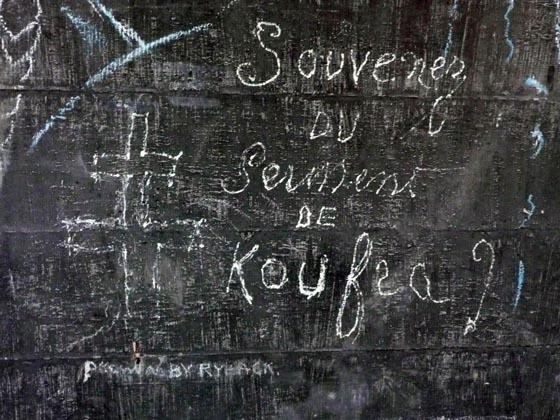 Souvenez
DU
Serment
DE
Koufra ?
BY